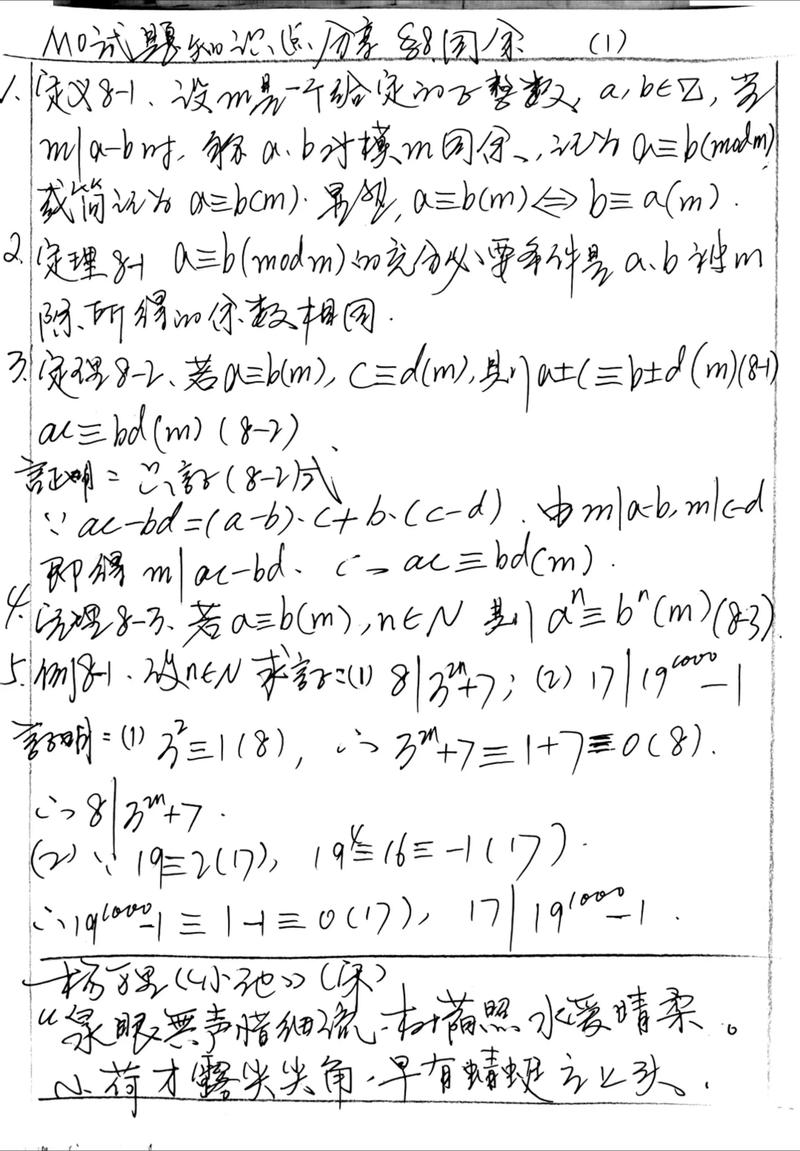 MO试题知识点分享 §8.同余 (1)
1. 定义8-1、设m是一个给定的正整数, a,b∈Z, 当
m|a-b时, 称a、b对模m同余, 记为a≡b(modm)
或简记为a≡b(m). 显然, a≡b(m)⟺b≡a(m).
2. 定理8-1 a≡b(modm)的充分必要条件是a、b被m
除所得的余数相同.
3. 定理8-2、若a≡b(m), c≡d(m), 则a±c≡b±d(m)(8-1)
ac≡bd(m) (8-2)
証明: 只証(8-2)式
∵ac-bd=(a-b)·c+b·(c-d). 由m|a-b, m|c-d
即得m|ac-bd、∴ac≡bd(m).
4. 定理8-3、若a≡b(m), n∈N 则a^n≡b^n(m)(8-3).
5. 例8-1、设n∈N 求証:(1) 8|3^{2n}+7; (2) 17|19^{1000}-1
証明:(1) 3^2≡1(8), ∴3^{2n}+7≡1+7≡0(8).
∴8|3^{2n}+7.
(2)∵19≡2(17), 19^4≡16≡-1(17).
∴19^{1000}-1≡1-1≡0(17), 17|19^{1000}-1.
杨万里《小池》(宋)
“泉眼無声惜细流、树蔭照水爱晴柔。
小荷才露尖尖角、早有蜻蜓立上头。